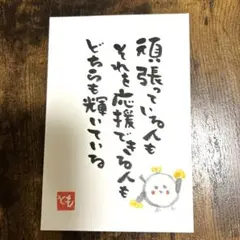 頑張っている人も
それを応援できる人も
どちらも輝いている